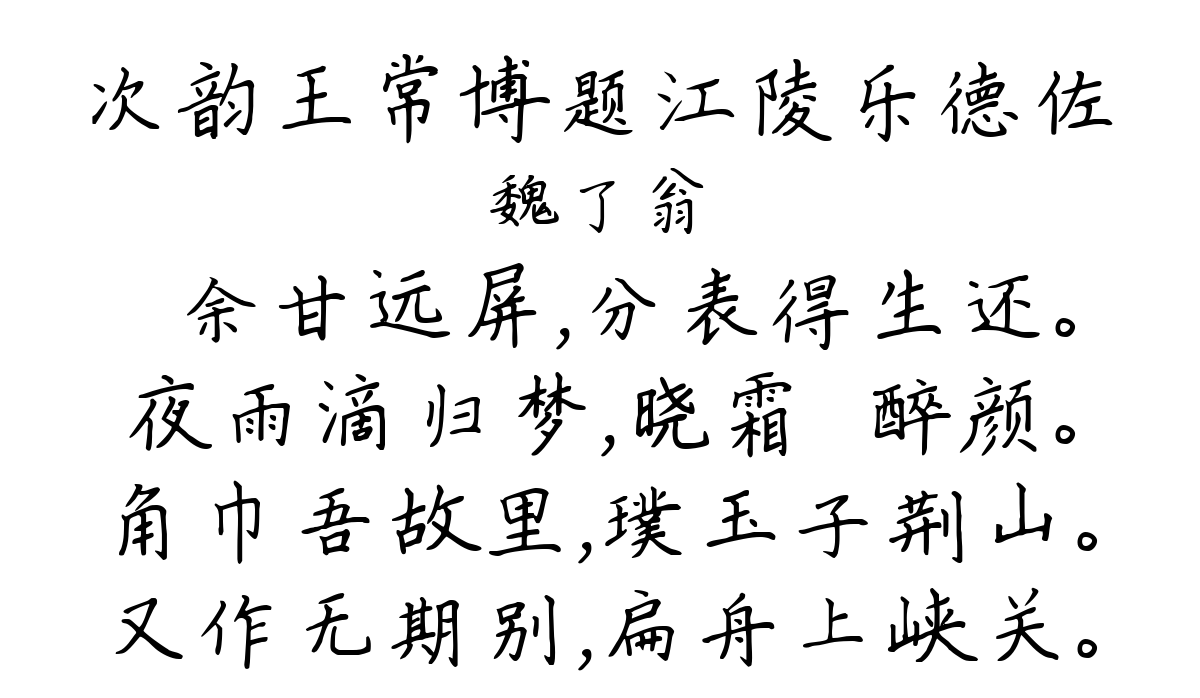 次韵王常博题江陵乐德佐
魏了翁
余甘远屏,分表得生还。
夜雨滴归梦,晓霜 醉颜。
角巾吾故里,璞玉子荆山。
又作无期别,扁舟上峡关。